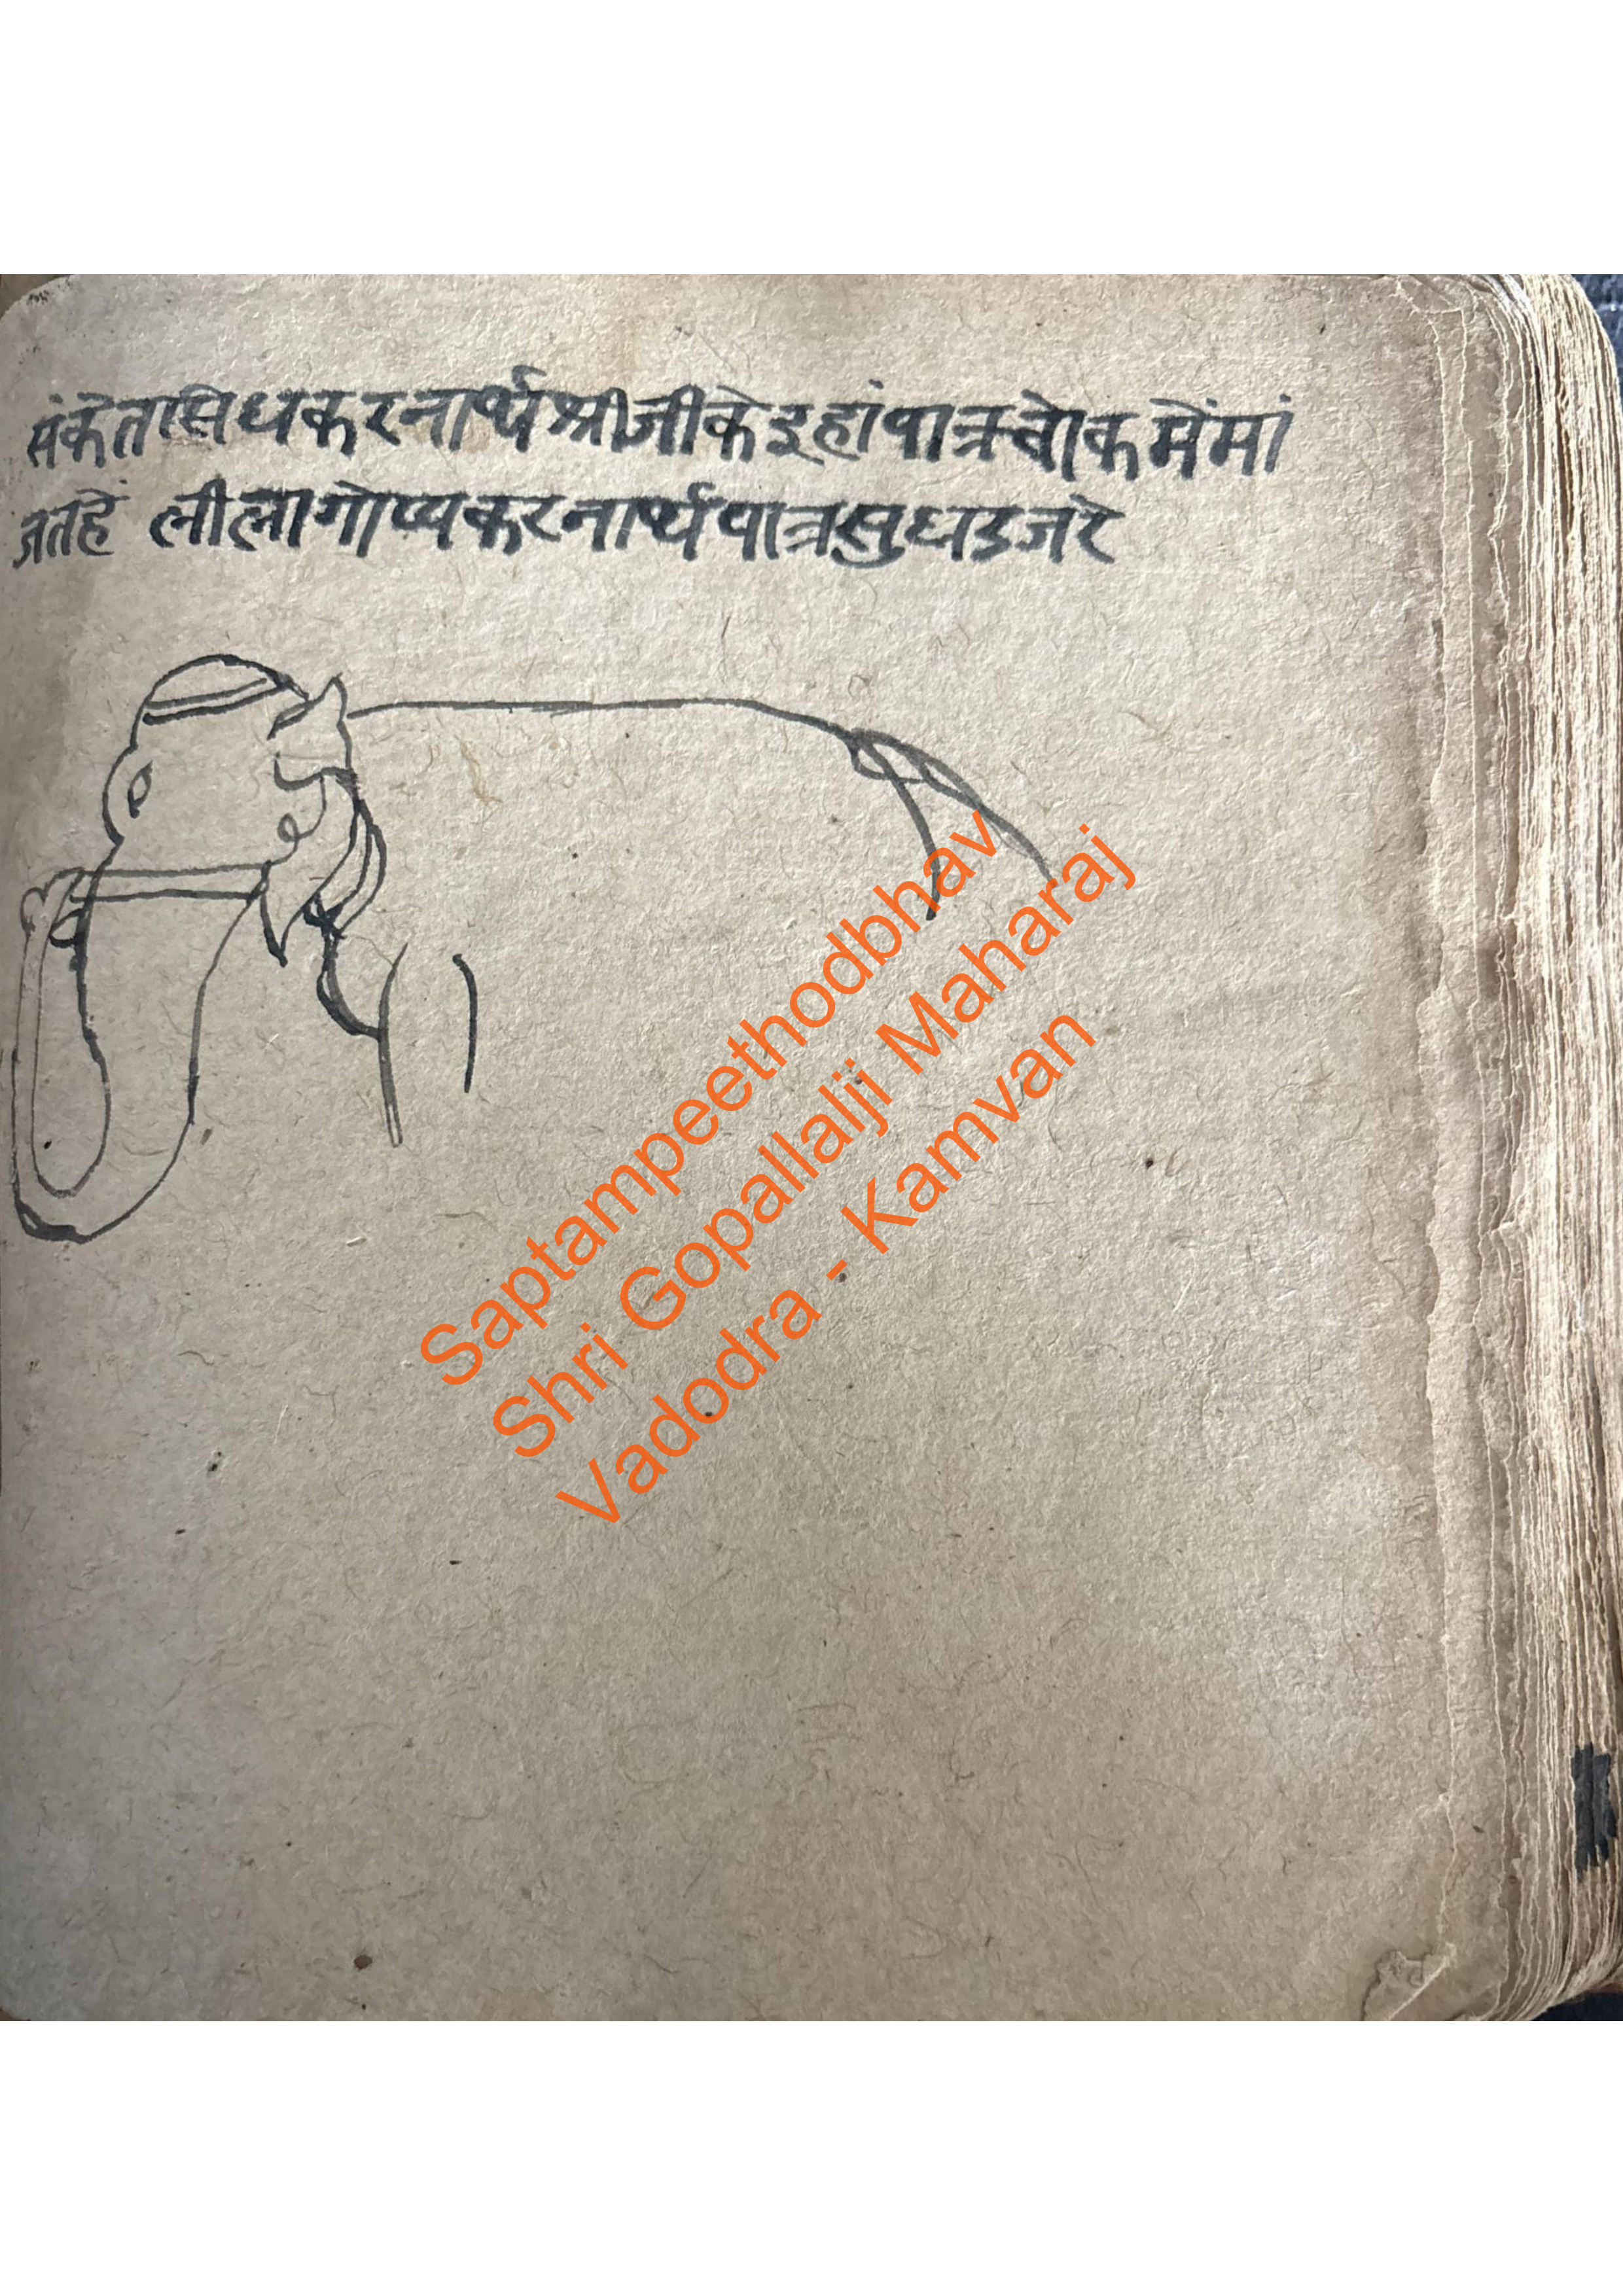 संकेतसिधकरनार्थश्रीजीकेइहांपात्रचोकमेंमां
जतहें लीलागोप्यकरनार्थपात्रसुघडजरे
Saptampeethodbhav
Shri Gopallalji Maharaj
Vadodra - Kamvan